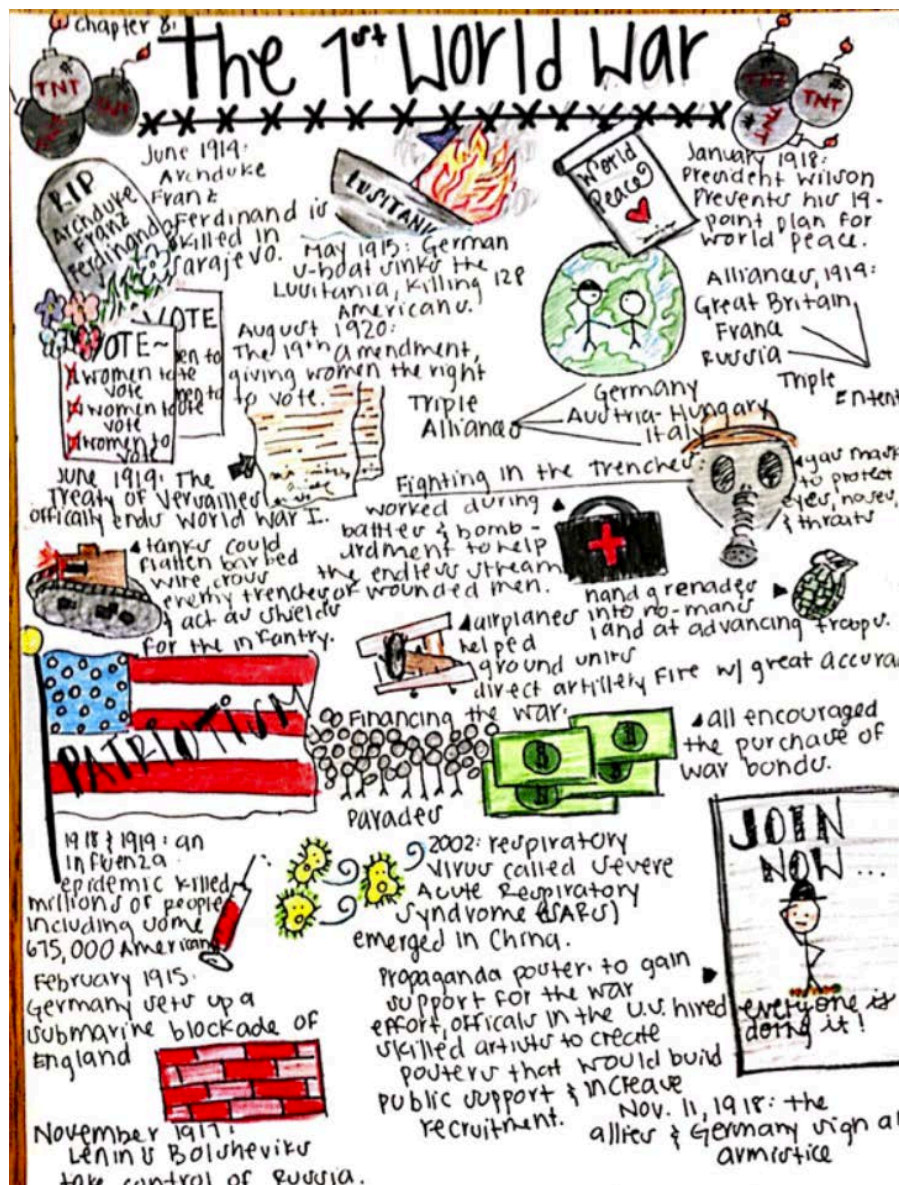 Chapter 8:
The 1st World War
TNT
TNT
TNT
TNT
RIP
Archduke
Franz
Ferdinand
June 1914:
Archduke
Franz
Ferdinand is
killed in
Sarajevo.
LUSITANIA
May 1915: German
U-boat sinks the
Lusitania, killing 128
Americans.
World
Peace
January 1918:
President Wilson
Presents his 14-
point plan for
world peace.
Alliances, 1914:
Great Britain
France
Russia
Triple
Entent
VOTE
VOTE~
women to
vote
women to
vote
women to
vote
August 1920:
The 19th amendment,
giving women the right
to vote.
Triple
Alliance
Germany
Austria-Hungary
Italy
June 1919: The
Treaty of Versailles
offically ends World War I.
Fighting in the Trenches
worked during
battles & bomb-
ardment to help
the endless stream
of wounded men.
gas mask
to protect
eyes, noses,
& throats
tanks could
flatten barbed
wire, cross
enemy trenches
& act as shields
for the infantry.
hand grenades
into no-mans
land at advancing troops.
airplanes
helped
ground units
direct artillery fire w/ great accura
PATRIOTISM
Financing the war:
Parades
all encouraged
the purchase of
war bonds.
1918 & 1919: an
influenza
epidemic killed
millions of people
including some
675,000 American
2002: respiratory
virus called Severe
Acute Respiratory
Syndrome (SARS)
emerged in China.
JOIN
NOW...
everyone is
doing it!
February 1915:
Germany sets up a
submarine blockade of
England
Propaganda poster: to gain
support for the war
effort, officals in the U.S. hired
skilled artists to create
posters that would build
public support & increase
recruitment.
November 1917:
Lenin's Bolsheviks
take control of Russia.
Nov. 11, 1918: the
allies & Germany sign a
armistice